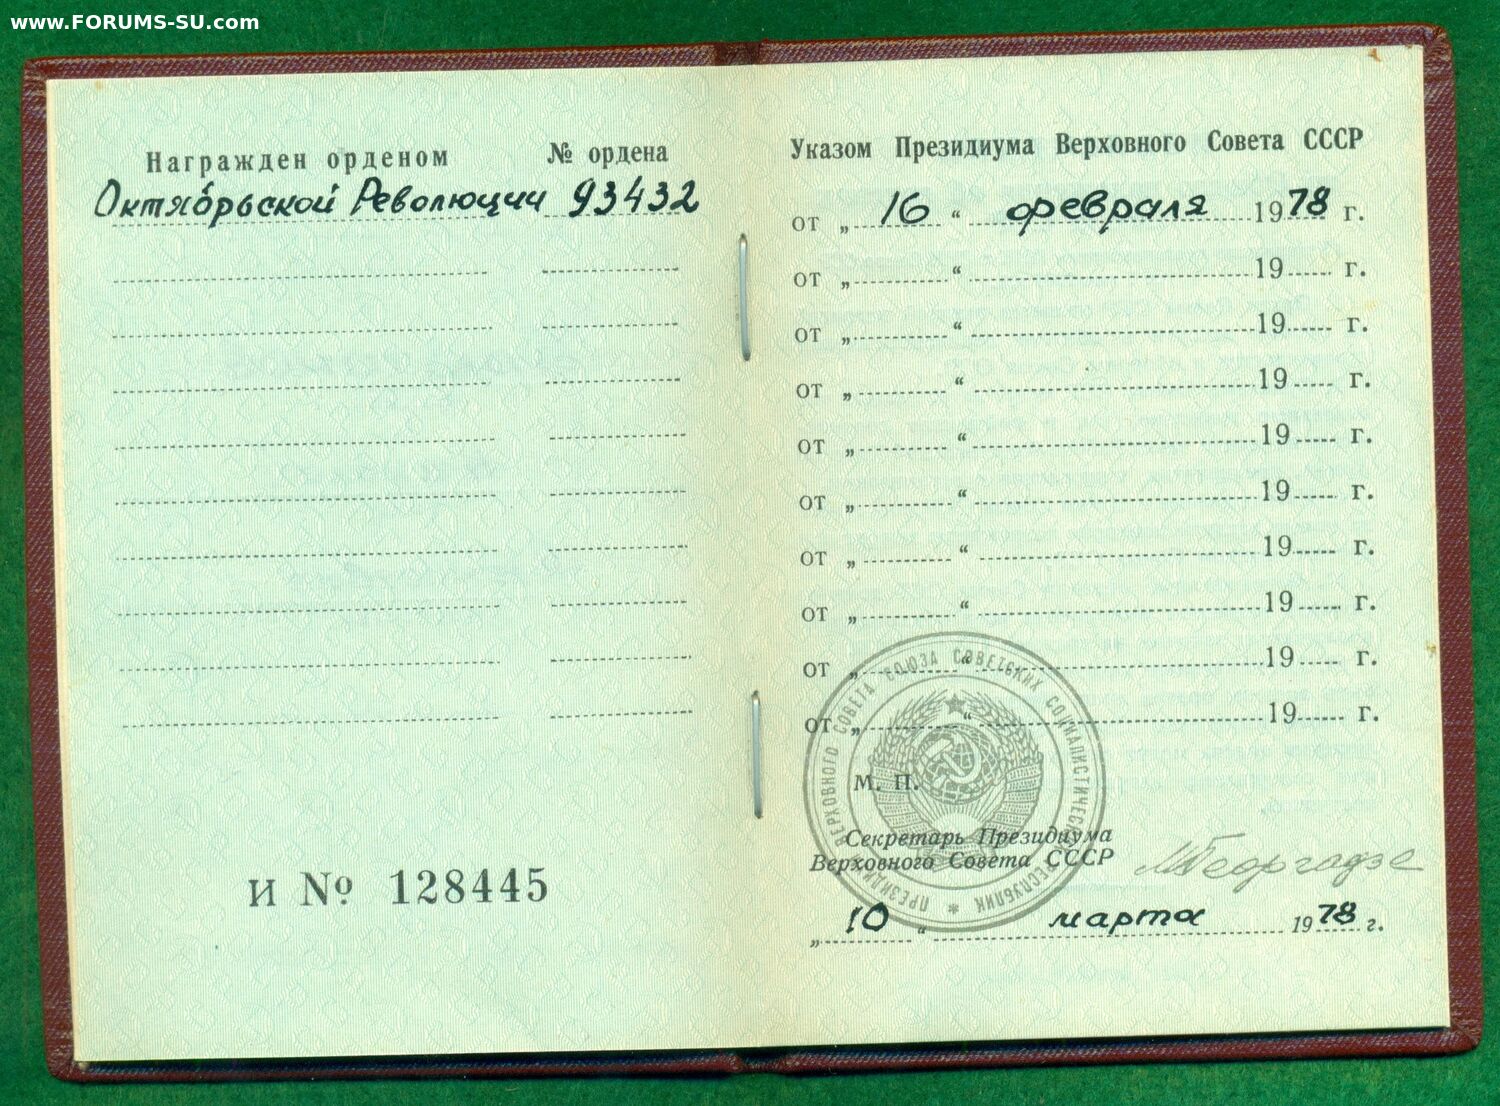 www.FORUMS-SU.com
Награжден орденом № ордена
Октябрьской Революции 93432
И № 128445
Указом Президиума Верховного Совета СССР
от „ 16 “ февраля 1978 г.
от „ “ 19 г.
от „ “ 19 г.
от „ “ 19 г.
от „ “ 19 г.
от „ “ 19 г.
от „ “ 19 г.
от „ “ 19 г.
от „ “ 19 г.
от „ “ 19 г.
М. П.
ПРЕЗИДИУМ ВЕРХОВНОГО СОВЕТА СОЮЗА СОВЕТСКИХ СОЦИАЛИСТИЧЕСКИХ РЕСПУБЛИК *
Секретарь Президиума
Верховного Совета СССР
МГеоргадзе
„ 10 “ марта 1978 г.